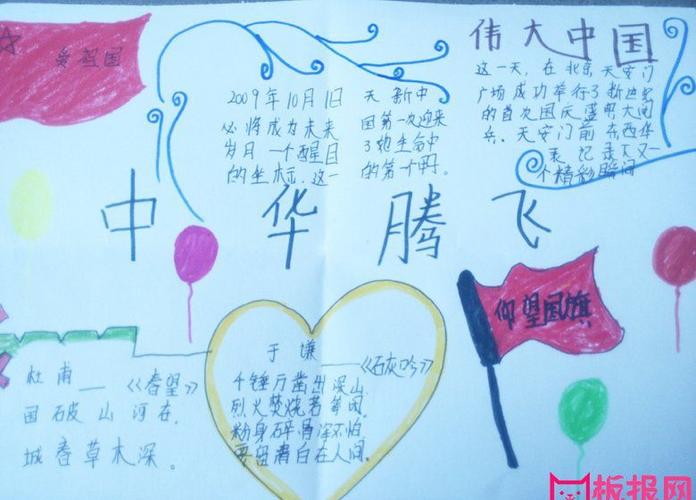 爱祖国
伟大中国
2009年10月1日
必将成为未来
岁月一个醒目
的坐标,这一
天新中
国第一次迎来
了她生命中
的第一个
这一天,在北京天安门
广场成功举行了新世纪
的首次国庆盛明大阅
兵。天安门前东西华
表记录下又一
个精彩瞬间
中华腾飞
仰望国旗
杜甫——《春望》
国破山河在,
城春草木深。
于谦——《石灰吟》
千锤万凿出深山,
烈火焚烧若等闲。
粉身碎骨浑不怕,
要留清白在人间。
板报网